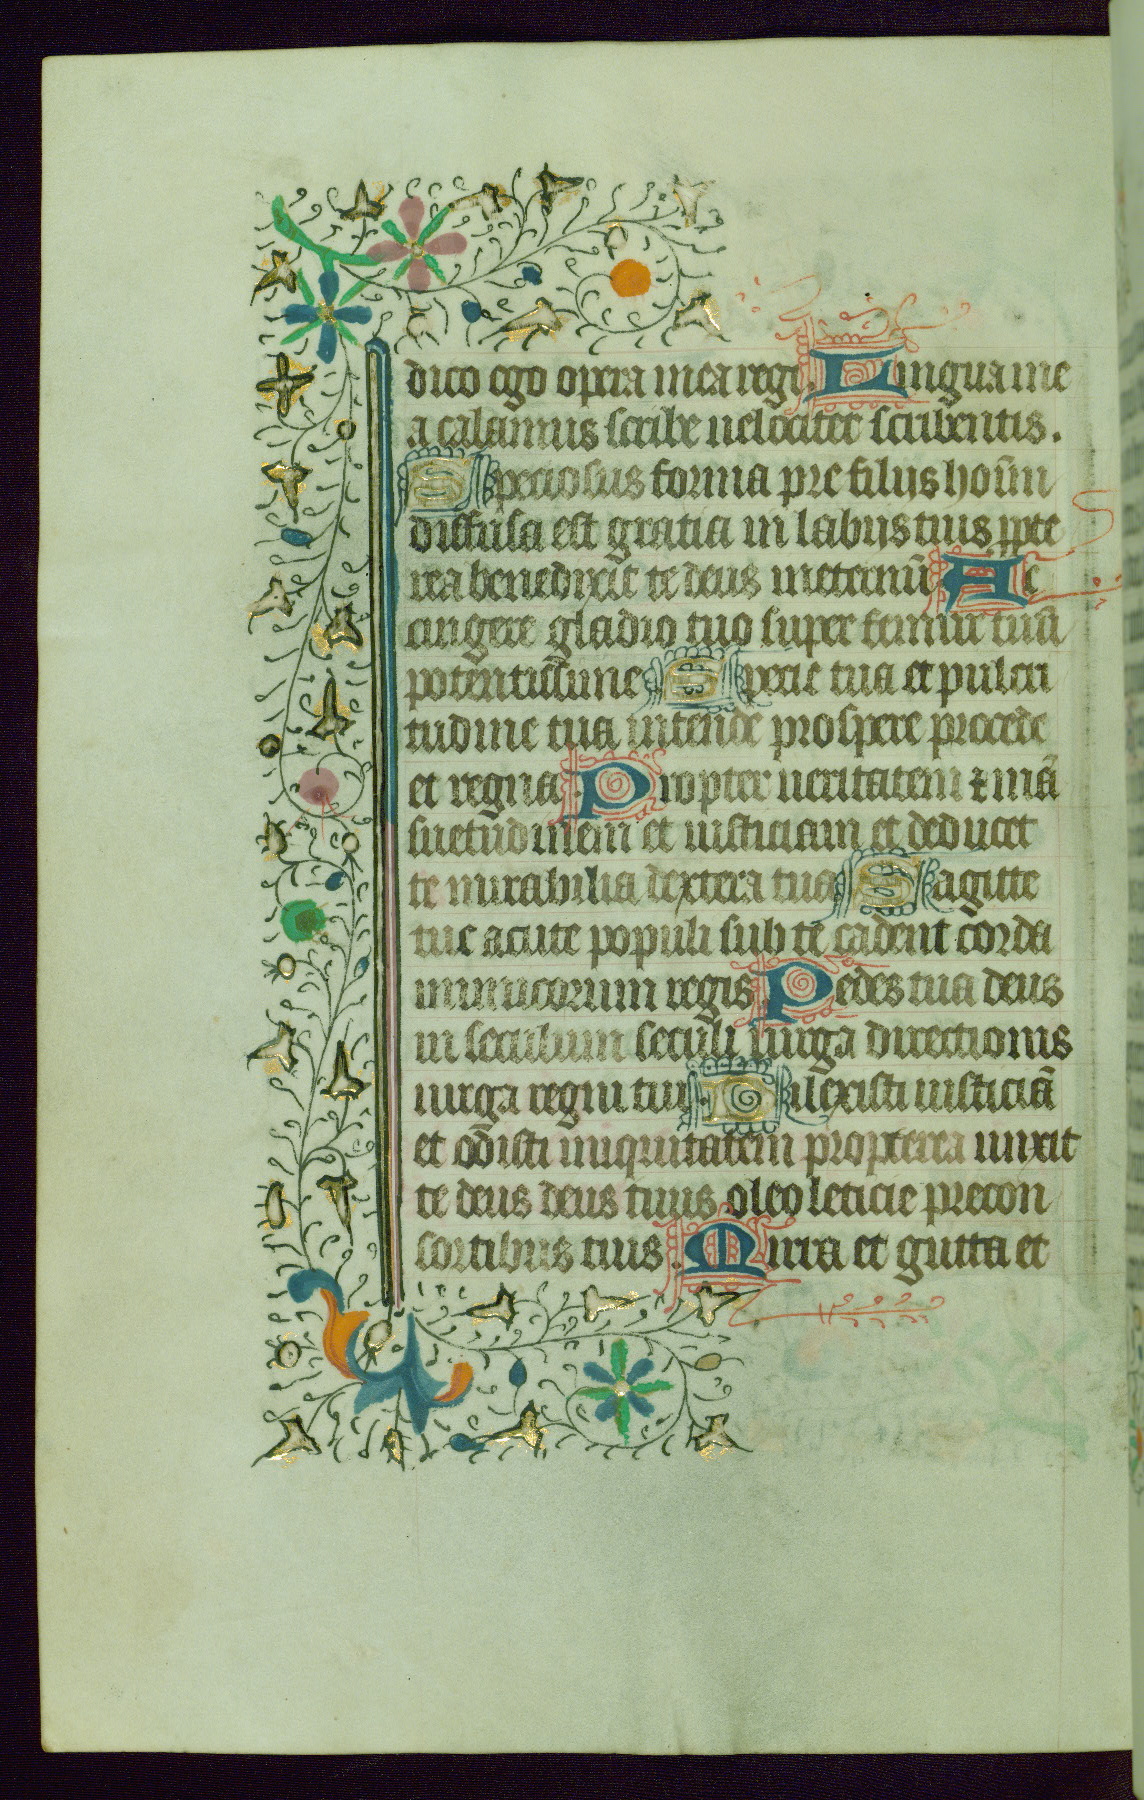 dico ego opera mea regi. Lingua me
a calamus scribe uelociter scribentis.
Speciosus forma pre filijs hoūm
diffusa est gratia in labijs tuis ppte
rea benedixit te deus in eternū Ac
cingere gladio tuo super femur tuū
potentissime Specie tua et pulcri
tudine tua intende prospere procede
et regna. Propter ueritatem ⁊ mā
suetudinem et iusticiam et deducet
te mirabilia dextera tua Sagitte
tue acute populi sub te cadent corda
inimicorum regis Sedes tua deus
in seculum seculi uirga directionis
uirga regni tui. Dilexisti iusticiā
et odisti iniquitatem propterea unxit
te deus deus tuus oleo leticie precon
sortibus tuis. Mirra et gutta et